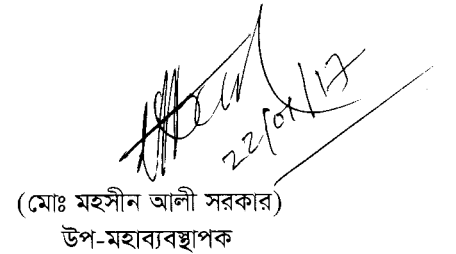 22/01/17
(মোঃ মহসীন আলী সরকার)
উপ-মহাব্যবস্থাপক